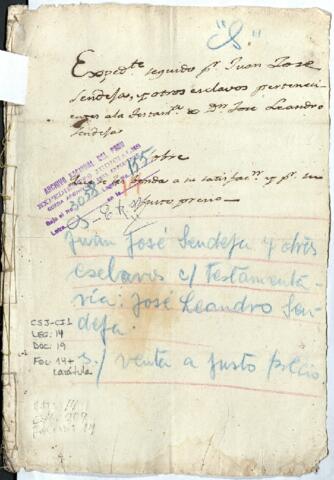 "S."
Exped.te seguido p.r Juan José
Sendeja, y otros esclavos perteneci-
entes a la Testam.a D.n José Leandro
Sendeja
Sobre
Que se les venda a su satisfac.n y p.r un
justo precio
ARCHIVO NACIONAL DEL PERÚ
Juan José Sendeja y otros
esclavos c/ testamenta-
ría: José Leandro Sen-
deja.
s./ venta a justo precio
CSJ-CI1
LEG: 14
DOC. 19
FOL: 14+
carátula